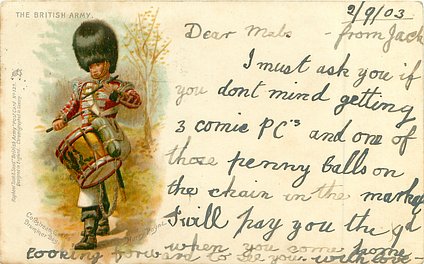 THE BRITISH ARMY.
2/9/03
Dear Mab. - from Jack
I must ask you if
you dont mind getting
3 comic PC's and one of
those penny balls on
the chain in the market
I will pay you the 9d
when you come home
looking forward to see you with love -
Coldstream Guards
Drummer Boy
Harry Payne